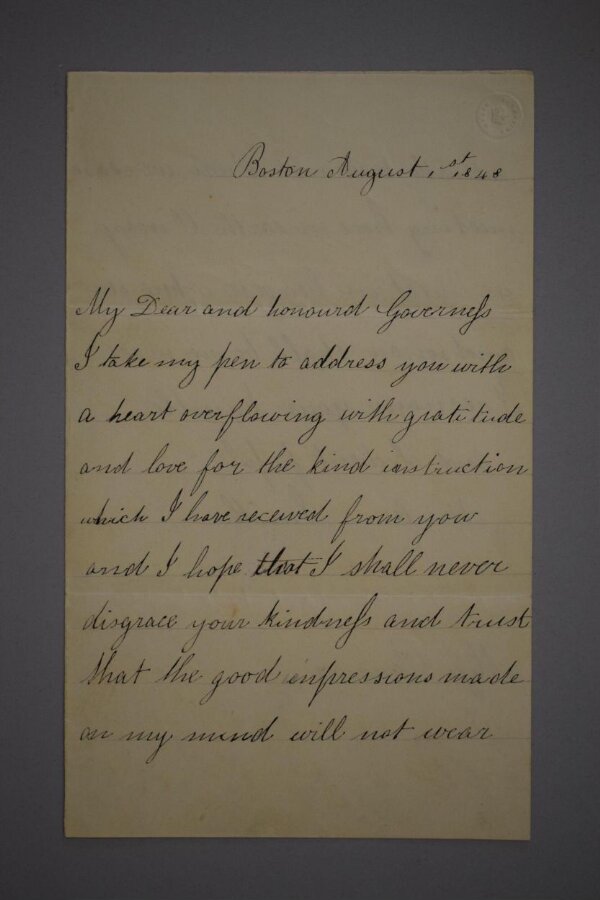 Boston August 1st 1848
My Dear and honourd Governeſs
I take my pen to address you with
a heart overflowing with gratitude
and love for the kind instruction
which I have received from you
and I hope that I shall never
disgrace your kindneſs and trust
that the good inpressions made
on my mind will not wear